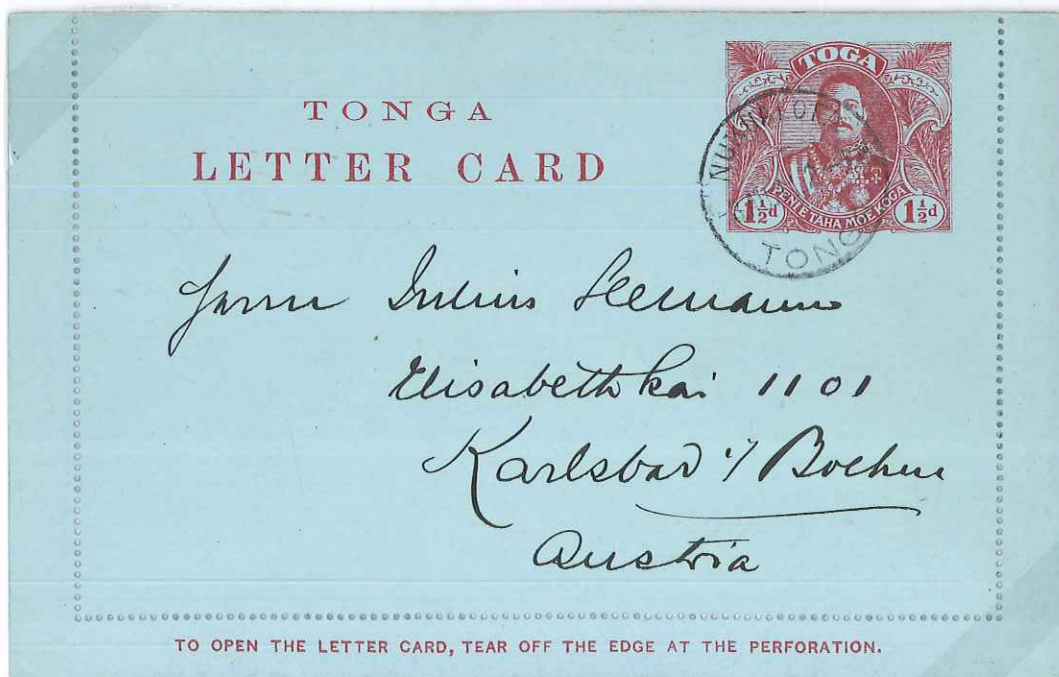 TOGA
TONGA
LETTER CARD
NUKUALOFA
PENI E TAHA MOE KOGA
1½d 1½d
TONG
Herrn Julius Seemann
Elisabethkai 1101
Karlsbad i/ Boehm
Austria
TO OPEN THE LETTER CARD, TEAR OFF THE EDGE AT THE PERFORATION.